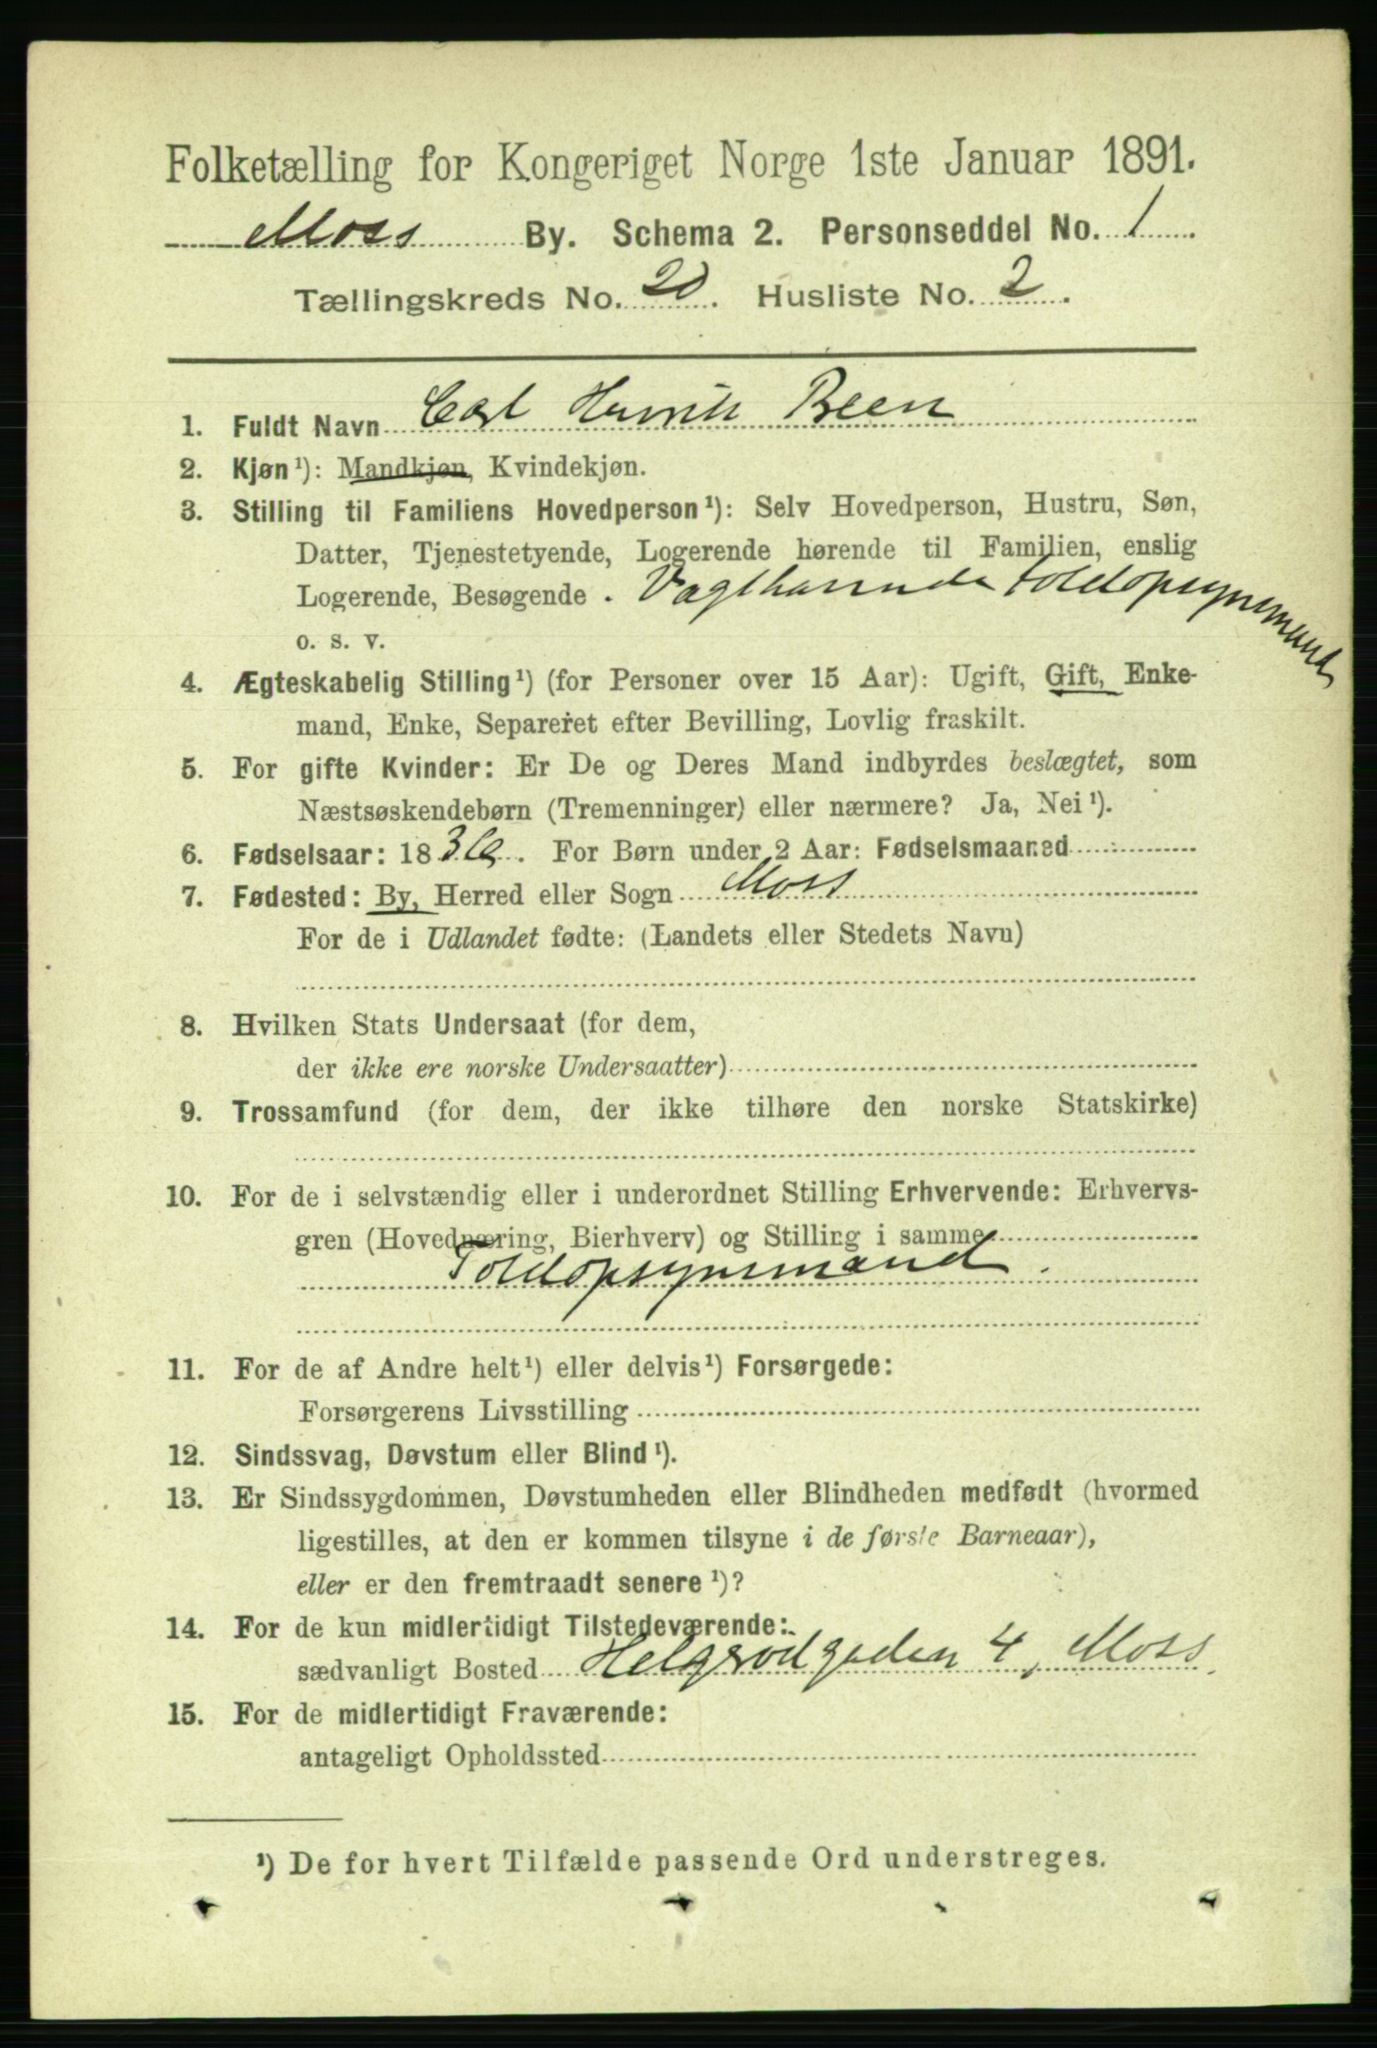 Folketælling for Kongeriget Norge 1ste Januar 1891.
Moss By. Schema 2. Personseddel No. 1.
Tællingskreds No. 20. Husliste No. 2.
1. Fuldt Navn Carl Henrik Been
2. Kjøn¹): Mandkjøn, Kvindekjøn.
3. Stilling til Familiens Hovedperson¹): Selv Hovedperson, Hustru, Søn,
Datter, Tjenestetyende, Logerende hørende til Familien, enslig
Logerende, Besøgende . Vagthavende Toldopsynsmand
o. s. v.
4. Ægteskabelig Stilling¹) (for Personer over 15 Aar): Ugift, Gift, Enke-
mand, Enke, Separeret efter Bevilling, Lovlig fraskilt.
5. For gifte Kvinder: Er De og Deres Mand indbyrdes beslægtet, som
Næstsøskendebørn (Tremenninger) eller nærmere? Ja, Nei¹).
6. Fødselsaar: 183 . For Børn under 2 Aar: Fødselsmaaned
7. Fødested: By, Herred eller Sogn Moss
For de i Udlandet fødte: (Landets eller Stedets Navn)
8. Hvilken Stats Undersaat (for dem,
der ikke ere norske Undersaatter)
9. Trossamfund (for dem, der ikke tilhøre den norske Statskirke)
10. For de i selvstændig eller i underordnet Stilling Erhvervende: Erhvervs-
gren (Hovednæring, Bierhverv) og Stilling i samme
Toldopsynsmand.
11. For de af Andre helt¹) eller delvis¹) Forsørgede:
Forsørgerens Livsstilling
12. Sindssvag, Døvstum eller Blind¹).
13. Er Sindssygdommen, Døvstumheden eller Blindheden medfødt (hvormed
ligestilles, at den er kommen tilsyne i de første Barneaar),
eller er den fremtraadt senere¹)?
14. For de kun midlertidigt Tilstedeværende:
sædvanligt Bosted Helgerødgaden 4, Moss.
15. For de midlertidigt Fraværende:
antageligt Opholdssted
¹) De for hvert Tilfælde passende Ord understreges.